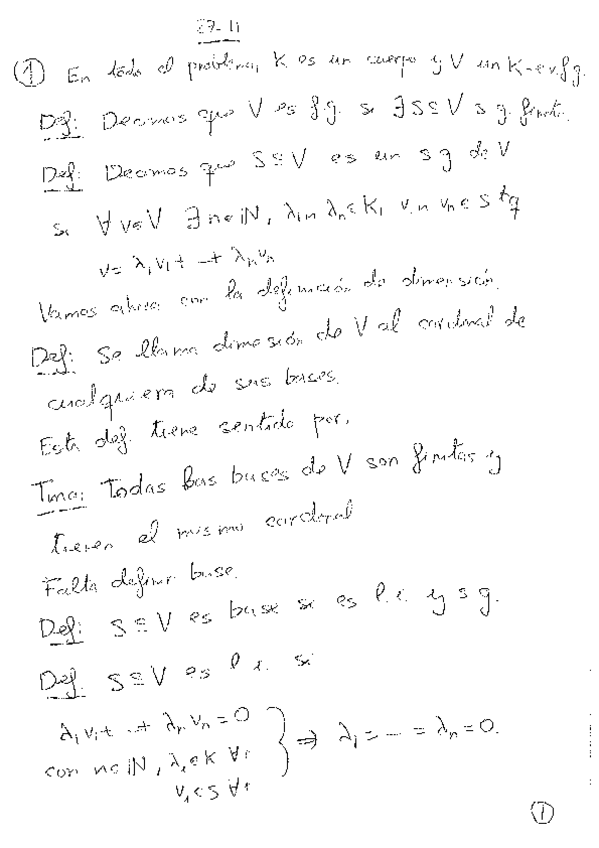 27-11
① En todo el problema, K es un cuerpo y V un K-e.v. f.g.
Def: Decimos que V es f.g. si ∃S⊆V s.g. finito.
Def: Decimos que S⊆V es un s.g. de V
si ∀v∈V ∃n∈ℕ, λ₁...λₙ∈K, v₁...vₙ∈S tq
v = λ₁v₁+...+λₙvₙ
Vamos ahora con la definición de dimensión.
Def: Se llama dimensión de V al cardinal de
cualquiera de sus bases.
Esta def. tiene sentido por:
Tma: Todas las bases de V son finitas y
tienen el mismo cardinal
Falta definir base.
Def: S⊆V es base si es l.i. y s.g.
Def: S⊆V es l.i. si
λ₁v₁+...+λₙvₙ=0
con n∈ℕ, λᵢ∈K ∀i ⇒ λ₁=...=λₙ=0.
vᵢ∈S ∀i
①